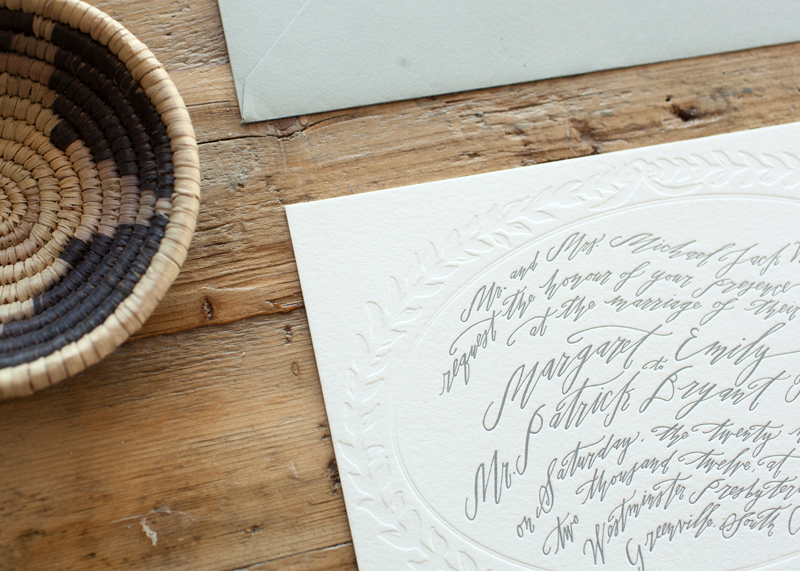 Mr. and Mrs. Michael Jack
request the honour of your presence
at the marriage of their
Margaret Emily
to
Mr. Patrick Bryant
on Saturday, the twenty
two thousand twelve, at
Westminster Presbyter
Greenville, South C